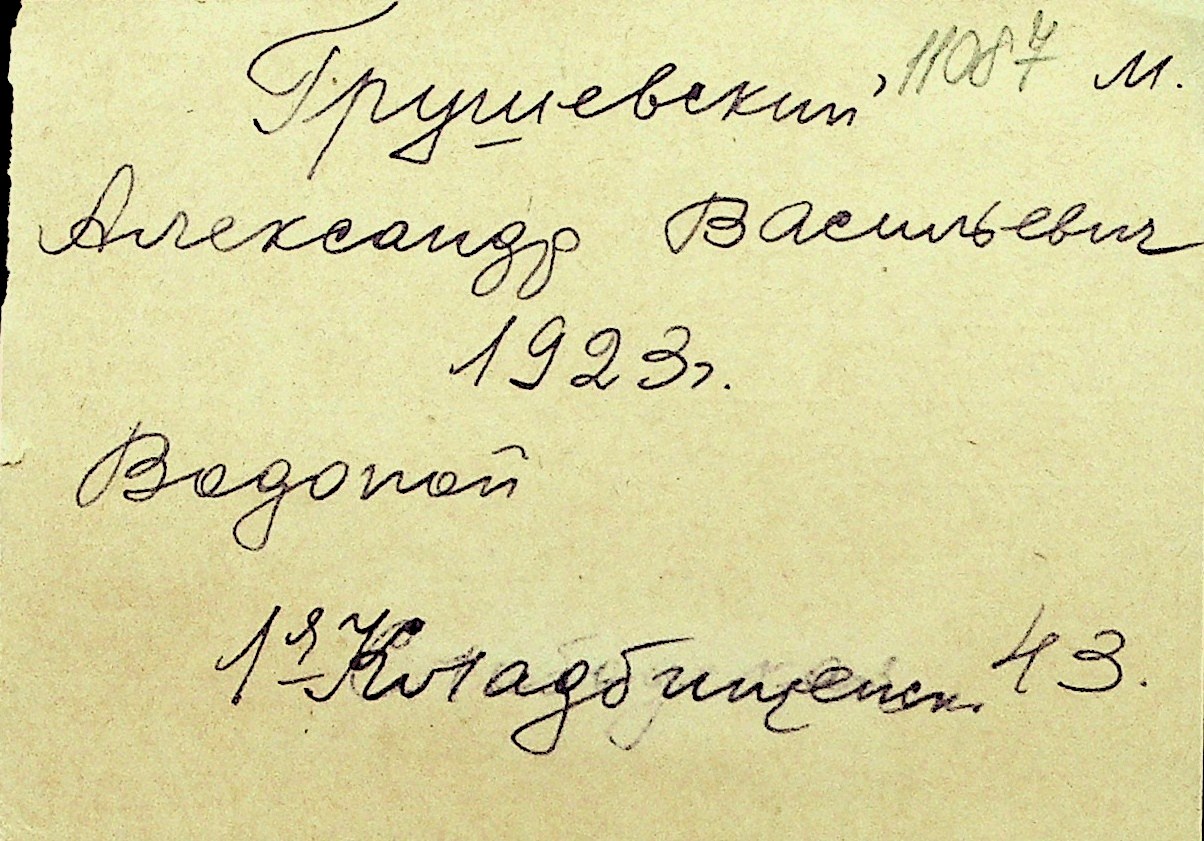 Грушевский 11087 м.
Александр Васильевич
1923г.
Водопой
1я Кладбищенск. 43.